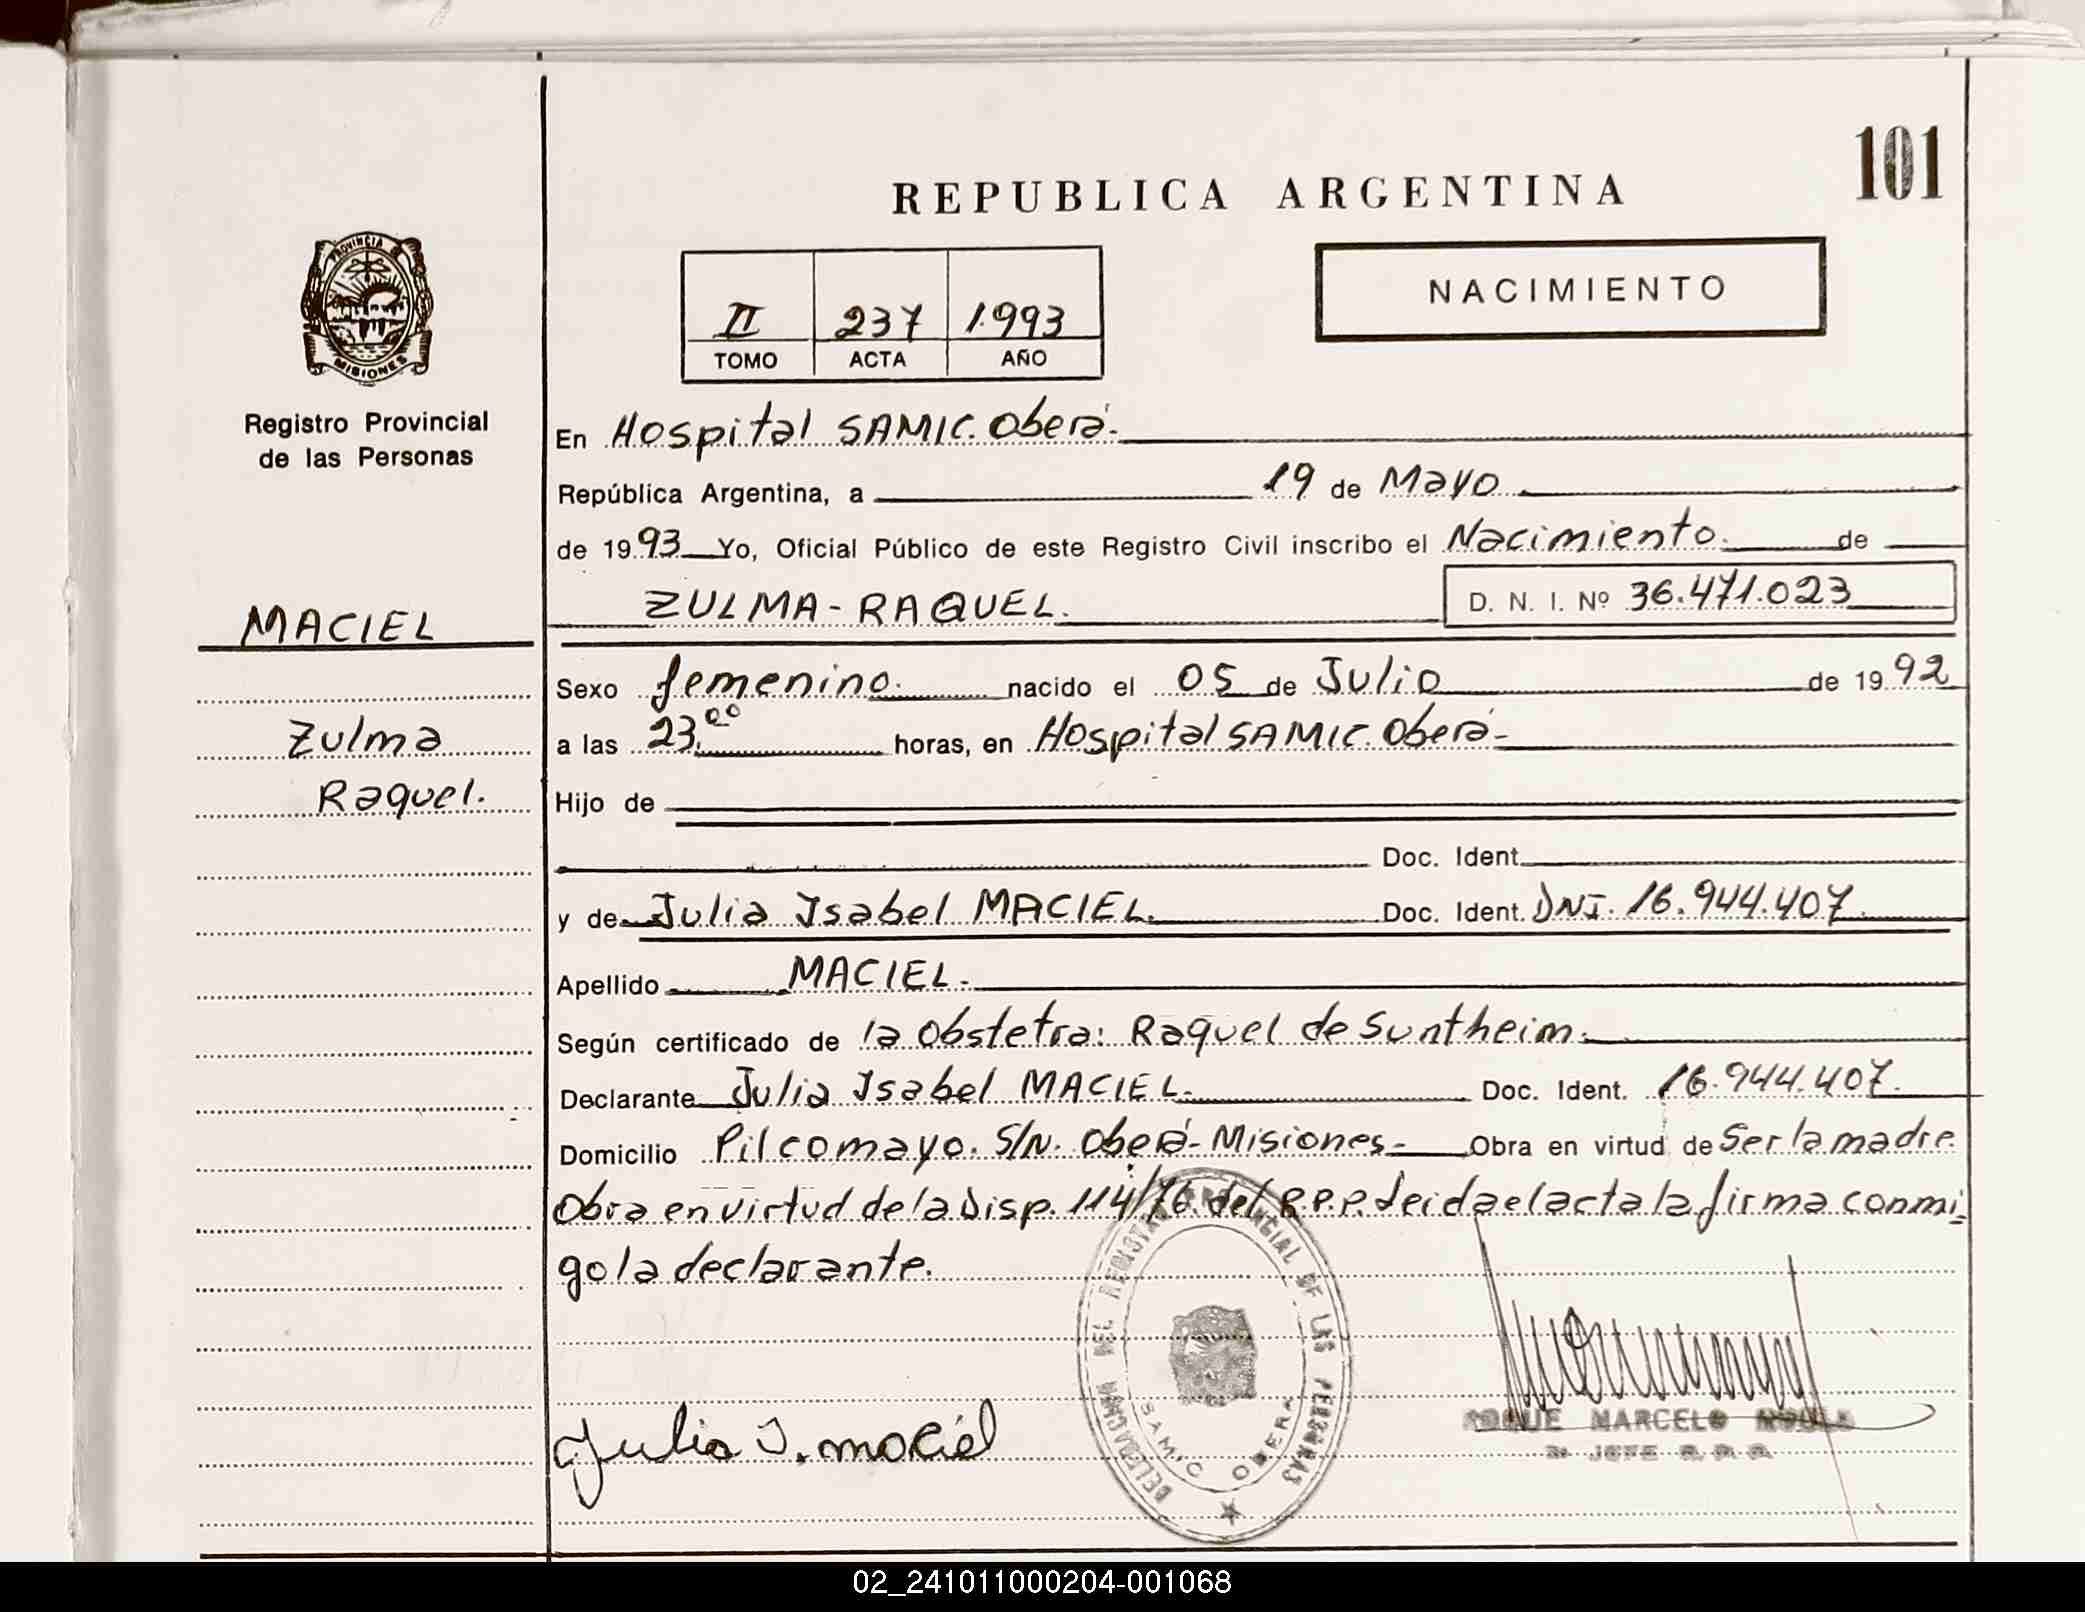 101
REPUBLICA ARGENTINA
PROVINCIA DE
MISIONES
II 237 1.993
TOMO ACTA AÑO
NACIMIENTO
Registro Provincial
de las Personas
En Hospital SAMIC. Oberá.
República Argentina, a 19 de Mayo
de 1993 Yo, Oficial Público de este Registro Civil inscribo el Nacimiento. de
ZULMA-RAQUEL. D. N. I. Nº 36.471.023
MACIEL
Sexo femenino. nacido el 05 de Julio de 1992
Zulma
a las 23.00 horas, en Hospital SAMIC. Oberá-
Raquel.
Hijo de
Doc. Ident.
y de Julia Isabel MACIEL. Doc. Ident. DNI. 16.944.407
Apellido MACIEL.
Según certificado de la Obstetra: Raquel de Suntheim.
Declarante Julia Isabel MACIEL. Doc. Ident. 16.944.407.
Domicilio Pilcomayo. S/N. Oberá-Misiones- Obra en virtud de Ser la madre.
Obra en virtud de la Disp. 114/76 del R.P.P. Leida el acta la firma conmi-
go la declarante.
DELEGACION DEL REGISTRO PROVINCIAL DE LAS PERSONAS
SAMIC OBERA
Julia I. maciel
ROQUE MARCELO
JEFE
02_241011000204-001068